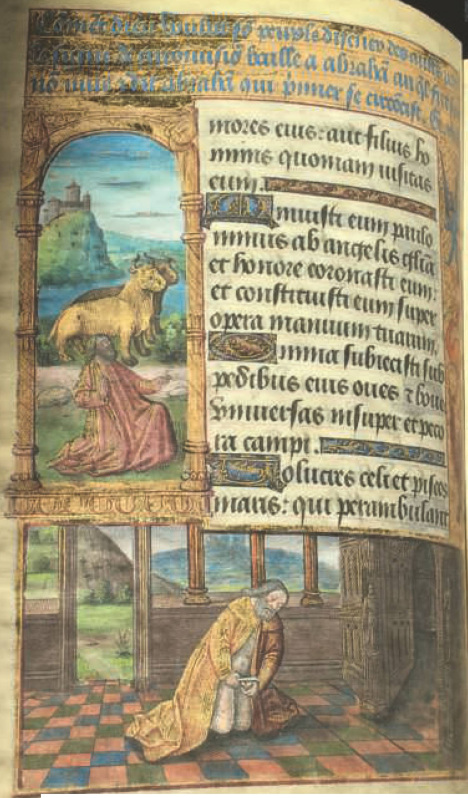 Come dieu voulut so peuple
de circoncisio baille a abrahã
abrahã qui p̃mier se circõcist
mores eius: aut filius ho
minis quoniam visitas
eum.
Minuisti eum paulo
minus ab angelis gl̃ia
et honore coronasti eum:
et constituisti eum super
opera manuum tuarum.
Omnia subiecisti sub
pedibus eius oues ⁊ boues
vniuersas insuper et peco
ra campi.
Volucres celi et pisces
maris: qui perambulant